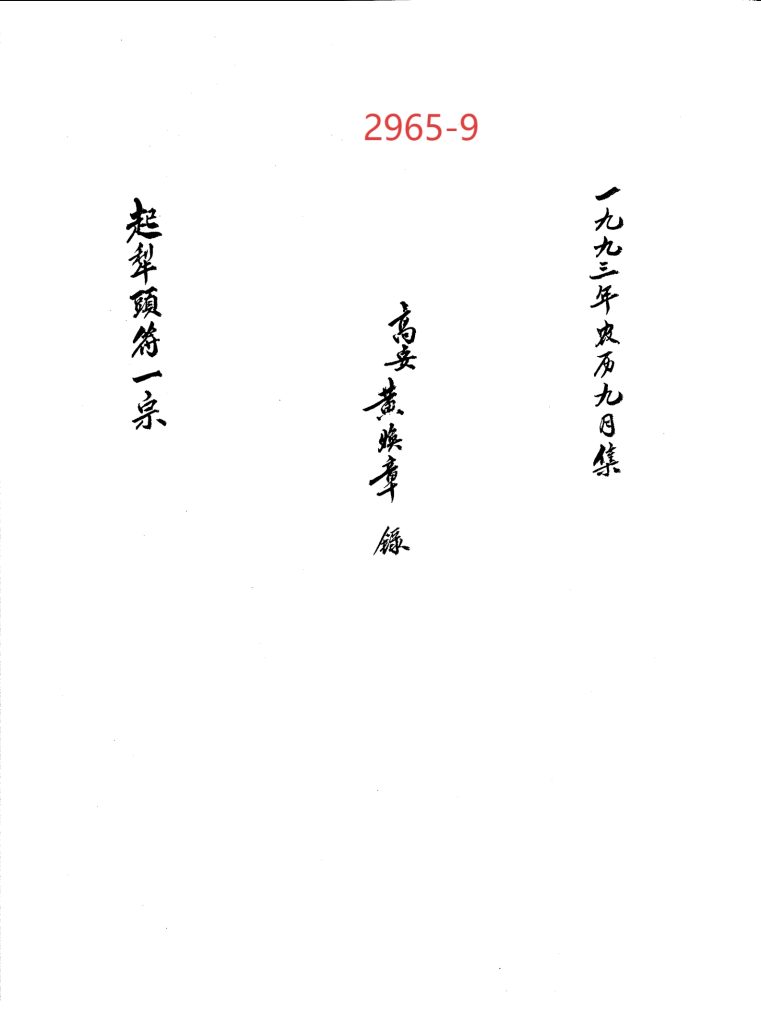 2965-9
一九九三年农历九月集
高安黄焕章 録
起犁頭符一宗